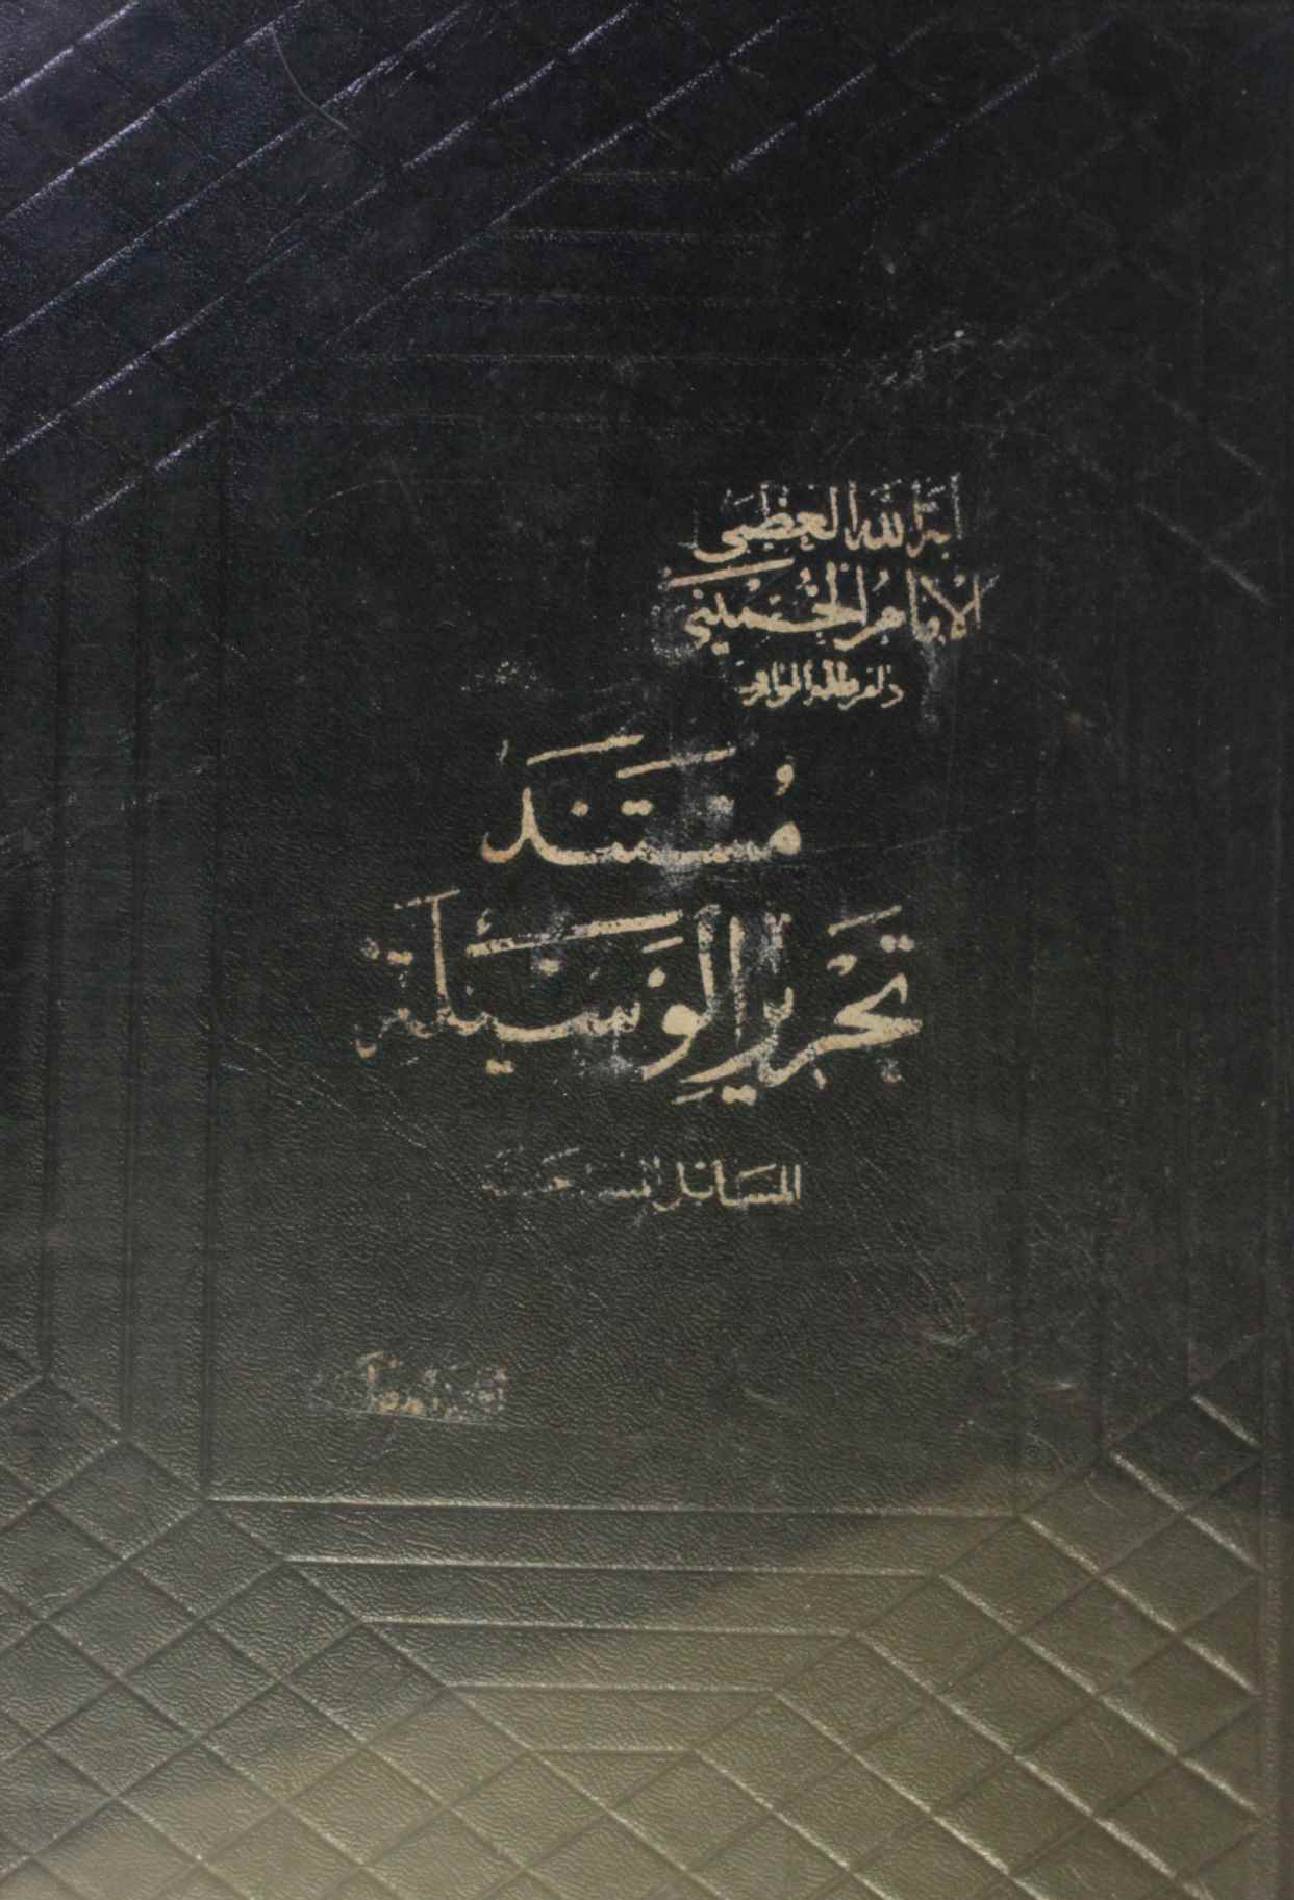 آية الله العظمى
الإمام الخميني
دام ظله الوارف
مُستَنَد
تَحرير الوَسيلَة
المسائل المستحدثة